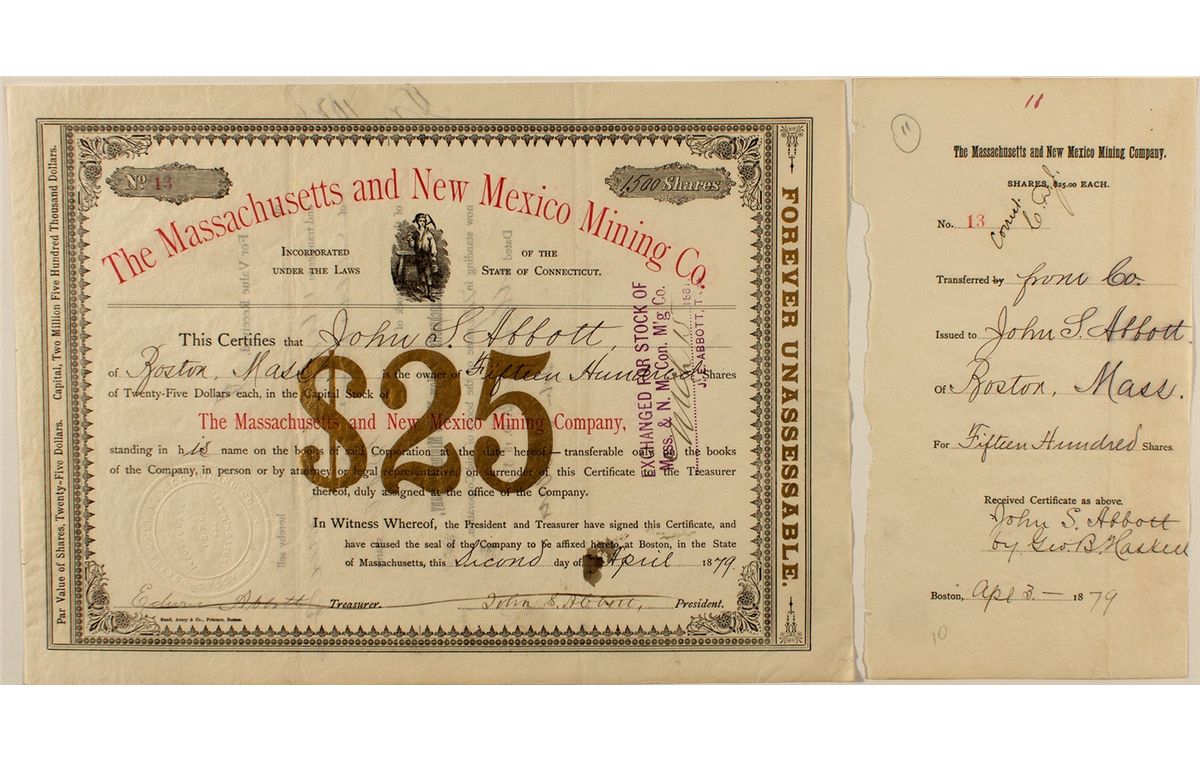 Par Value of Shares, Twenty-Five Dollars. Capital, Two Million Five Hundred Thousand Dollars.
No 13
1,500 Shares
The Massachusetts and New Mexico Mining Co.
Incorporated
under the Laws
of the
State of Connecticut.
This Certifies that John S. Abbott,
of Boston, Mass is the owner of Fifteen Hundred Shares
of Twenty-Five Dollars each, in the Capital Stock of
$25
The Massachusetts and New Mexico Mining Company,
standing in his name on the books of said Corporation at the date hereof transferable only on the books
of the Company, in person or by attorney or legal representative, on surrender of this Certificate to the Treasurer
thereof, duly assigned at the office of the Company.
In Witness Whereof, the President and Treasurer have signed this Certificate, and
have caused the seal of the Company to be affixed hereto, at Boston, in the State
of Massachusetts, this Second day of April 1879
Edwin Abbott Treasurer. John S. Abbott, President.
Rand, Avery & Co., Printers, Boston.
FOREVER UNASSESSABLE.
EXCHANGED FOR STOCK OF
Mass. & N. M. Con. M'g Co.
188
ABBOTT, T
11
11
The Massachusetts and New Mexico Mining Company.
SHARES, $25.00 EACH.
No. 13
Transferred by from Co.
Issued to John S. Abbott
of Boston, Mass.
For Fifteen Hundred Shares.
Received Certificate as above.
John S. Abbott
by Geo. B. Haskell
Boston, Apl 3 – 1879
10